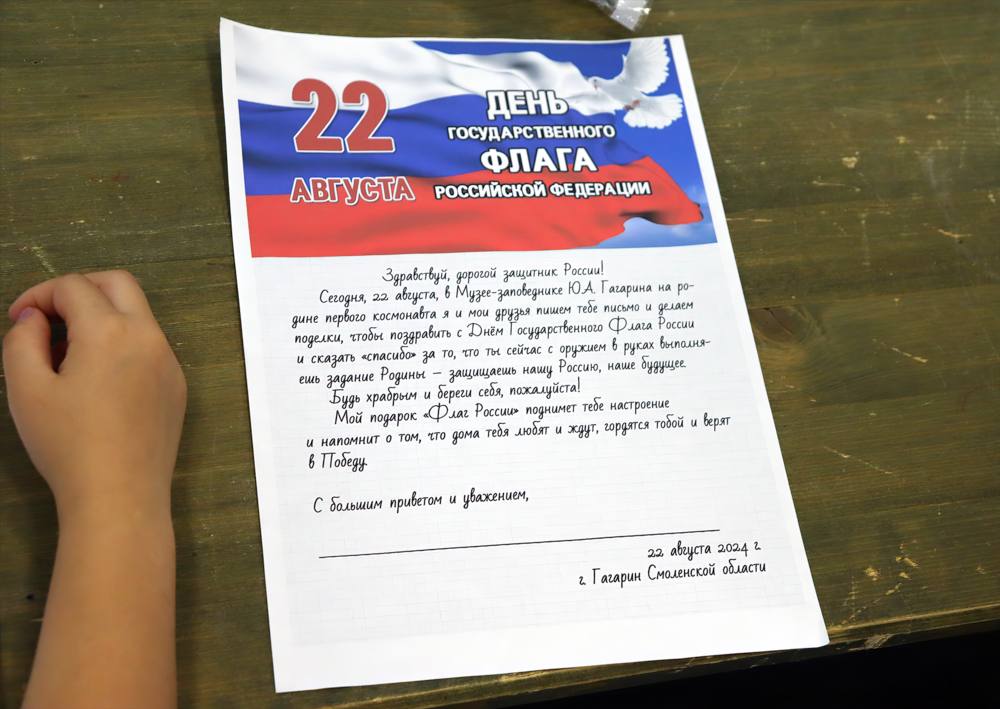 22
АВГУСТА
ДЕНЬ
ГОСУДАРСТВЕННОГО
ФЛАГА
РОССИЙСКОЙ ФЕДЕРАЦИИ
Здравствуй, дорогой защитник России!
Сегодня, 22 августа, в Музее-заповеднике Ю.А. Гагарина на ро-
дине первого космонавта я и мои друзья пишем тебе письмо и делаем
поделки, чтобы поздравить с Днём Государственного Флага России
и сказать «спасибо» за то, что ты сейчас с оружием в руках выполня-
ешь задание Родины – защищаешь нашу Россию, наше будущее.
Будь храбрым и береги себя, пожалуйста!
Мой подарок «Флаг России» поднимет тебе настроение
и напомнит о том, что дома тебя любят и ждут, гордятся тобой и верят
в Победу.
С большим приветом и уважением,
22 августа 2024 г.
г. Гагарин Смоленской области